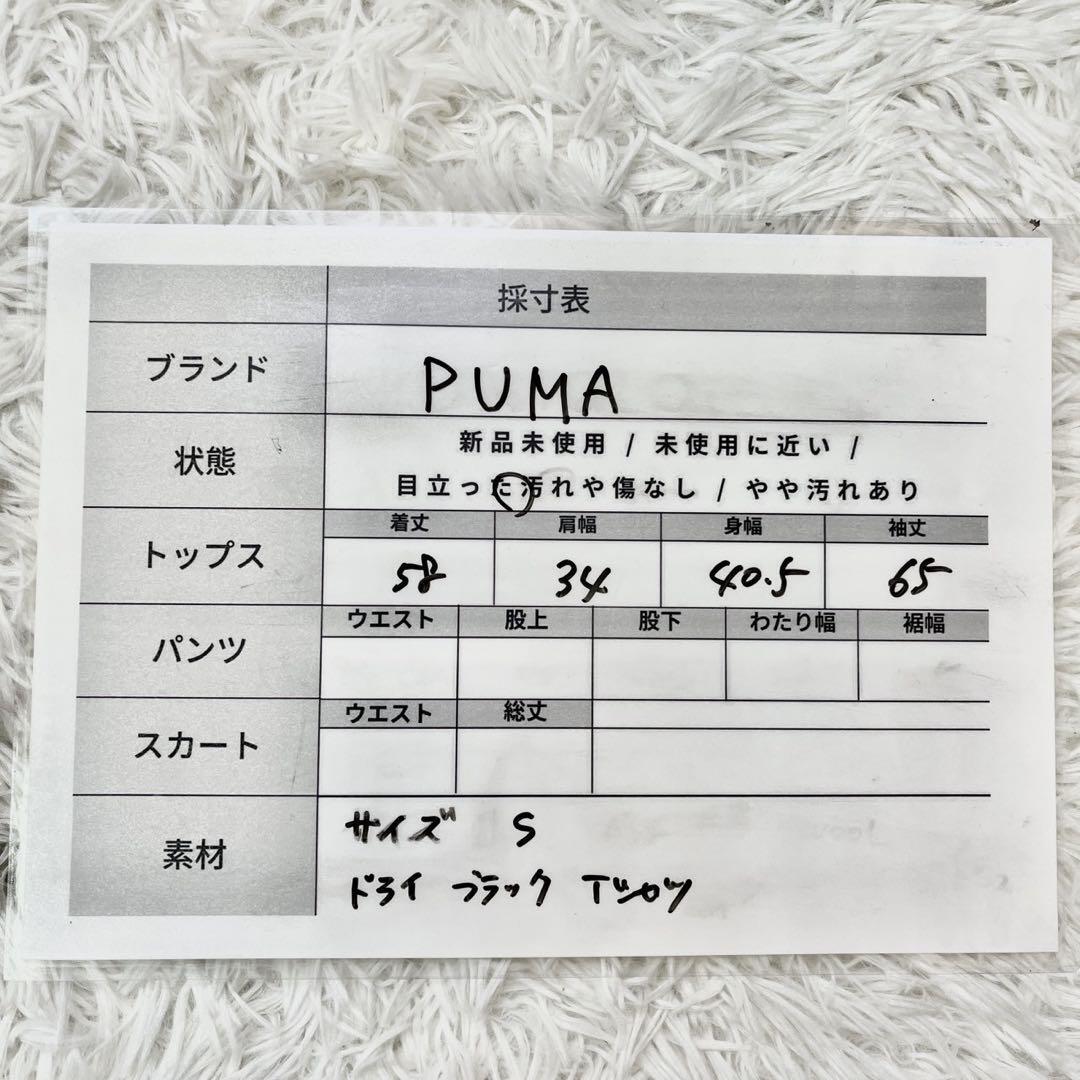 採寸表
ブランド PUMA
状態 新品未使用 / 未使用に近い /
目立った汚れや傷なし / やや汚れあり
着丈 肩幅 身幅 袖丈
トップス 58 34 40.5 65
ウエスト 股上 股下 わたり幅 裾幅
パンツ
ウエスト 総丈
スカート
サイズ S
素材
ドライ ブラック Tシャツ